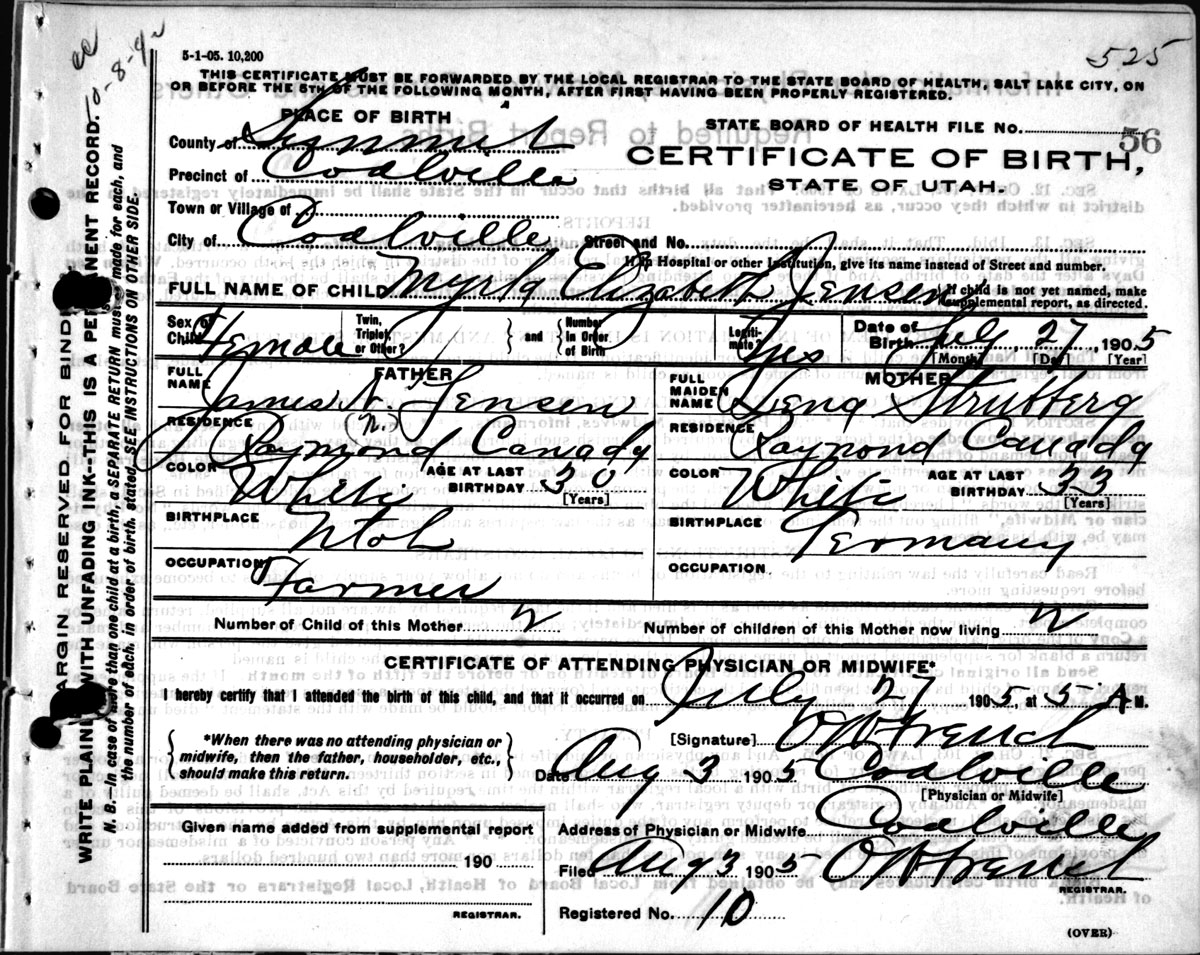 5-1-05. 10,200
525
THIS CERTIFICATE MUST BE FORWARDED BY THE LOCAL REGISTRAR TO THE STATE BOARD OF HEALTH, SALT LAKE CITY, ON
OR BEFORE THE 5TH OF THE FOLLOWING MONTH, AFTER FIRST HAVING BEEN PROPERLY REGISTERED.
PLACE OF BIRTH
STATE BOARD OF HEALTH FILE NO. 56
County of Summit
CERTIFICATE OF BIRTH,
Precinct of Coalville
STATE OF UTAH.
Town or Village of
City of Coalville Street and No.
If in Hospital or other Institution, give its name instead of Street and number.
FULL NAME OF CHILD Myrla Elizabeth Jensen
If child is not yet named, make
supplemental report, as directed.
Sex of Child Female
Twin, Triplet, or Other?
and
Number in Order of Birth
Legitimate? Yes
Date of Birth July 27 1905
[Month] [Day] [Year]
FATHER
FULL NAME James N. Jensen
MOTHER
FULL MAIDEN NAME Lena
RESIDENCE Raymond Canada
RESIDENCE Raymond Canada
COLOR White
AGE AT LAST BIRTHDAY 30
[Years]
COLOR White
AGE AT LAST BIRTHDAY 33
[Years]
BIRTHPLACE Utah
BIRTHPLACE Germany
OCCUPATION Farmer
OCCUPATION
Number of Child of this Mother 2
Number of children of this Mother now living 2
CERTIFICATE OF ATTENDING PHYSICIAN OR MIDWIFE*
I hereby certify that I attended the birth of this child, and that it occurred on July 27 1905, at 5- A M.
*When there was no attending physician or
midwife, then the father, householder, etc.,
should make this return.
[Signature]
Date Aug 3 1905 Coalville
[Physician or Midwife]
Given name added from supplemental report
190
REGISTRAR.
Address of Physician or Midwife Coalville
Filed Aug 3 1905
REGISTRAR.
Registered No. 10
(OVER)
MARGIN RESERVED FOR BINDING
WRITE PLAINLY WITH UNFADING INK--THIS IS A PERMANENT RECORD.
N. B.--In case of more than one child at a birth, a SEPARATE RETURN must be made for each, and
the number of each, in order of birth, stated. SEE INSTRUCTIONS ON OTHER SIDE.